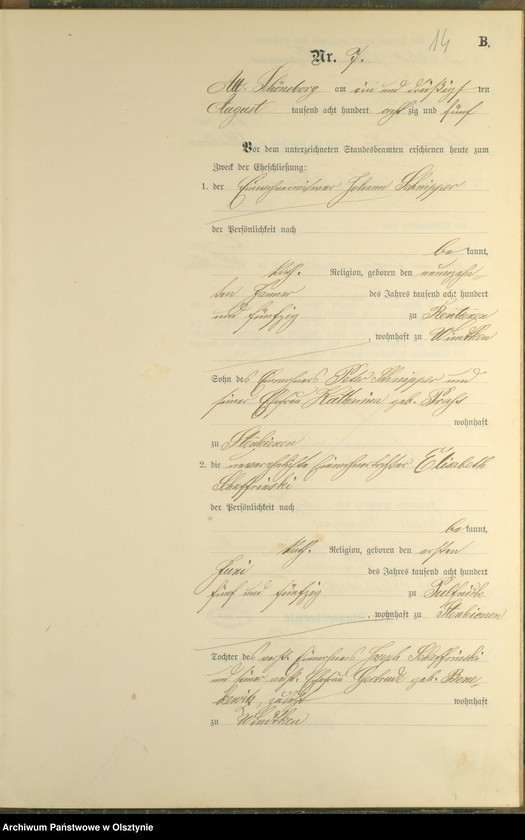 14 B.
Nr. 7.
Alt-Schöneberg am ein und dreißigs ten
August tausend acht hundert achtzig und fünf
Vor dem unterzeichneten Standesbeamten erschienen heute zum
Zweck der Eheschließung:
1. der Johann Schnipper
der Persönlichkeit nach
be kannt,
kath. Religion, geboren den neunzehn-
ten Januar des Jahres tausend acht hundert
und fünfzig zu
, wohnhaft zu
Sohn des Einwohners Peter Schnipper und
seiner Ehefrau Katharina geb.
wohnhaft
zu Stenkienen
2. die unverehelichte Elisabeth
der Persönlichkeit nach
be kannt,
kath. Religion, geboren den ersten
Juni des Jahres tausend acht hundert
fünf und fünfzig zu
, wohnhaft zu Stenkienen
Tochter des verst. Einwohners Joseph
und seiner verst. Ehefrau Gertrude geb.
zuletzt wohnhaft
zu
Archiwum Państwowe w Olsztynie